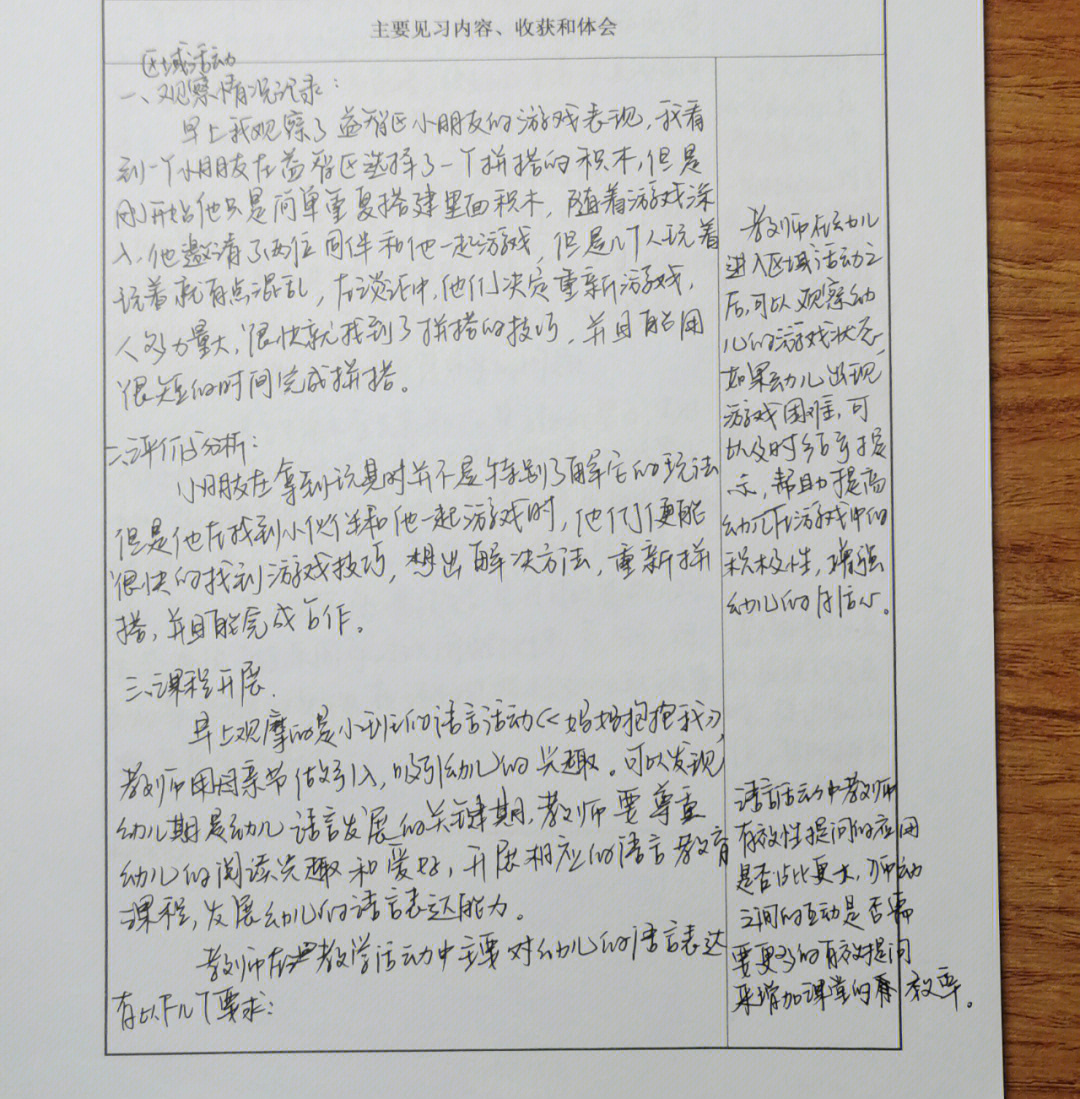 主要见习内容、收获和体会
区域活动
一、观察情况记录：
早上我观察了益智区小朋友的游戏表现，我看
到一个小朋友在益智区选择了一个拼搭的积木，但是
刚开始他只是简单重复搭建里面积木，随着游戏深
入，他邀请了两位同伴和他一起游戏，但是几个人玩着
玩着就有点混乱，在谈论中，他们决定重新游戏，
人多力量大，很快就找到了拼搭的技巧，并且能用
很短的时间完成拼搭。
二、评价与分析：
小朋友在拿到玩具时并不是特别了解它的玩法
但是他在找到小伙伴和他一起游戏时，他们便能
很快的找到游戏技巧，想出解决方法，重新拼
搭，并且能完成合作。
三、课程开展.
早上观摩的是小班的语言活动《妈妈抱抱我》，
教师用母亲节做引入，吸引幼儿的兴趣。可以发现
幼儿期是幼儿语言发展的关键期，教师要尊重
幼儿的阅读兴趣和爱好，开展相应的语言教育
课程，发展幼儿的语言表达能力。
教师在教学活动中主要对幼儿的语言表达
有以下几个要求：
教师在幼儿
进入区域活动之
后，可以观察幼
儿的游戏状态，
如果幼儿出现
游戏困难，可
以及时给予提
示，帮助提高
幼儿在游戏中的
积极性，增强
幼儿的自信心。
语言活动中教师
有效性提问的应用
是否占比更大，师幼
之间的互动是否需
要更多的有效提问
来增加课堂的效率。